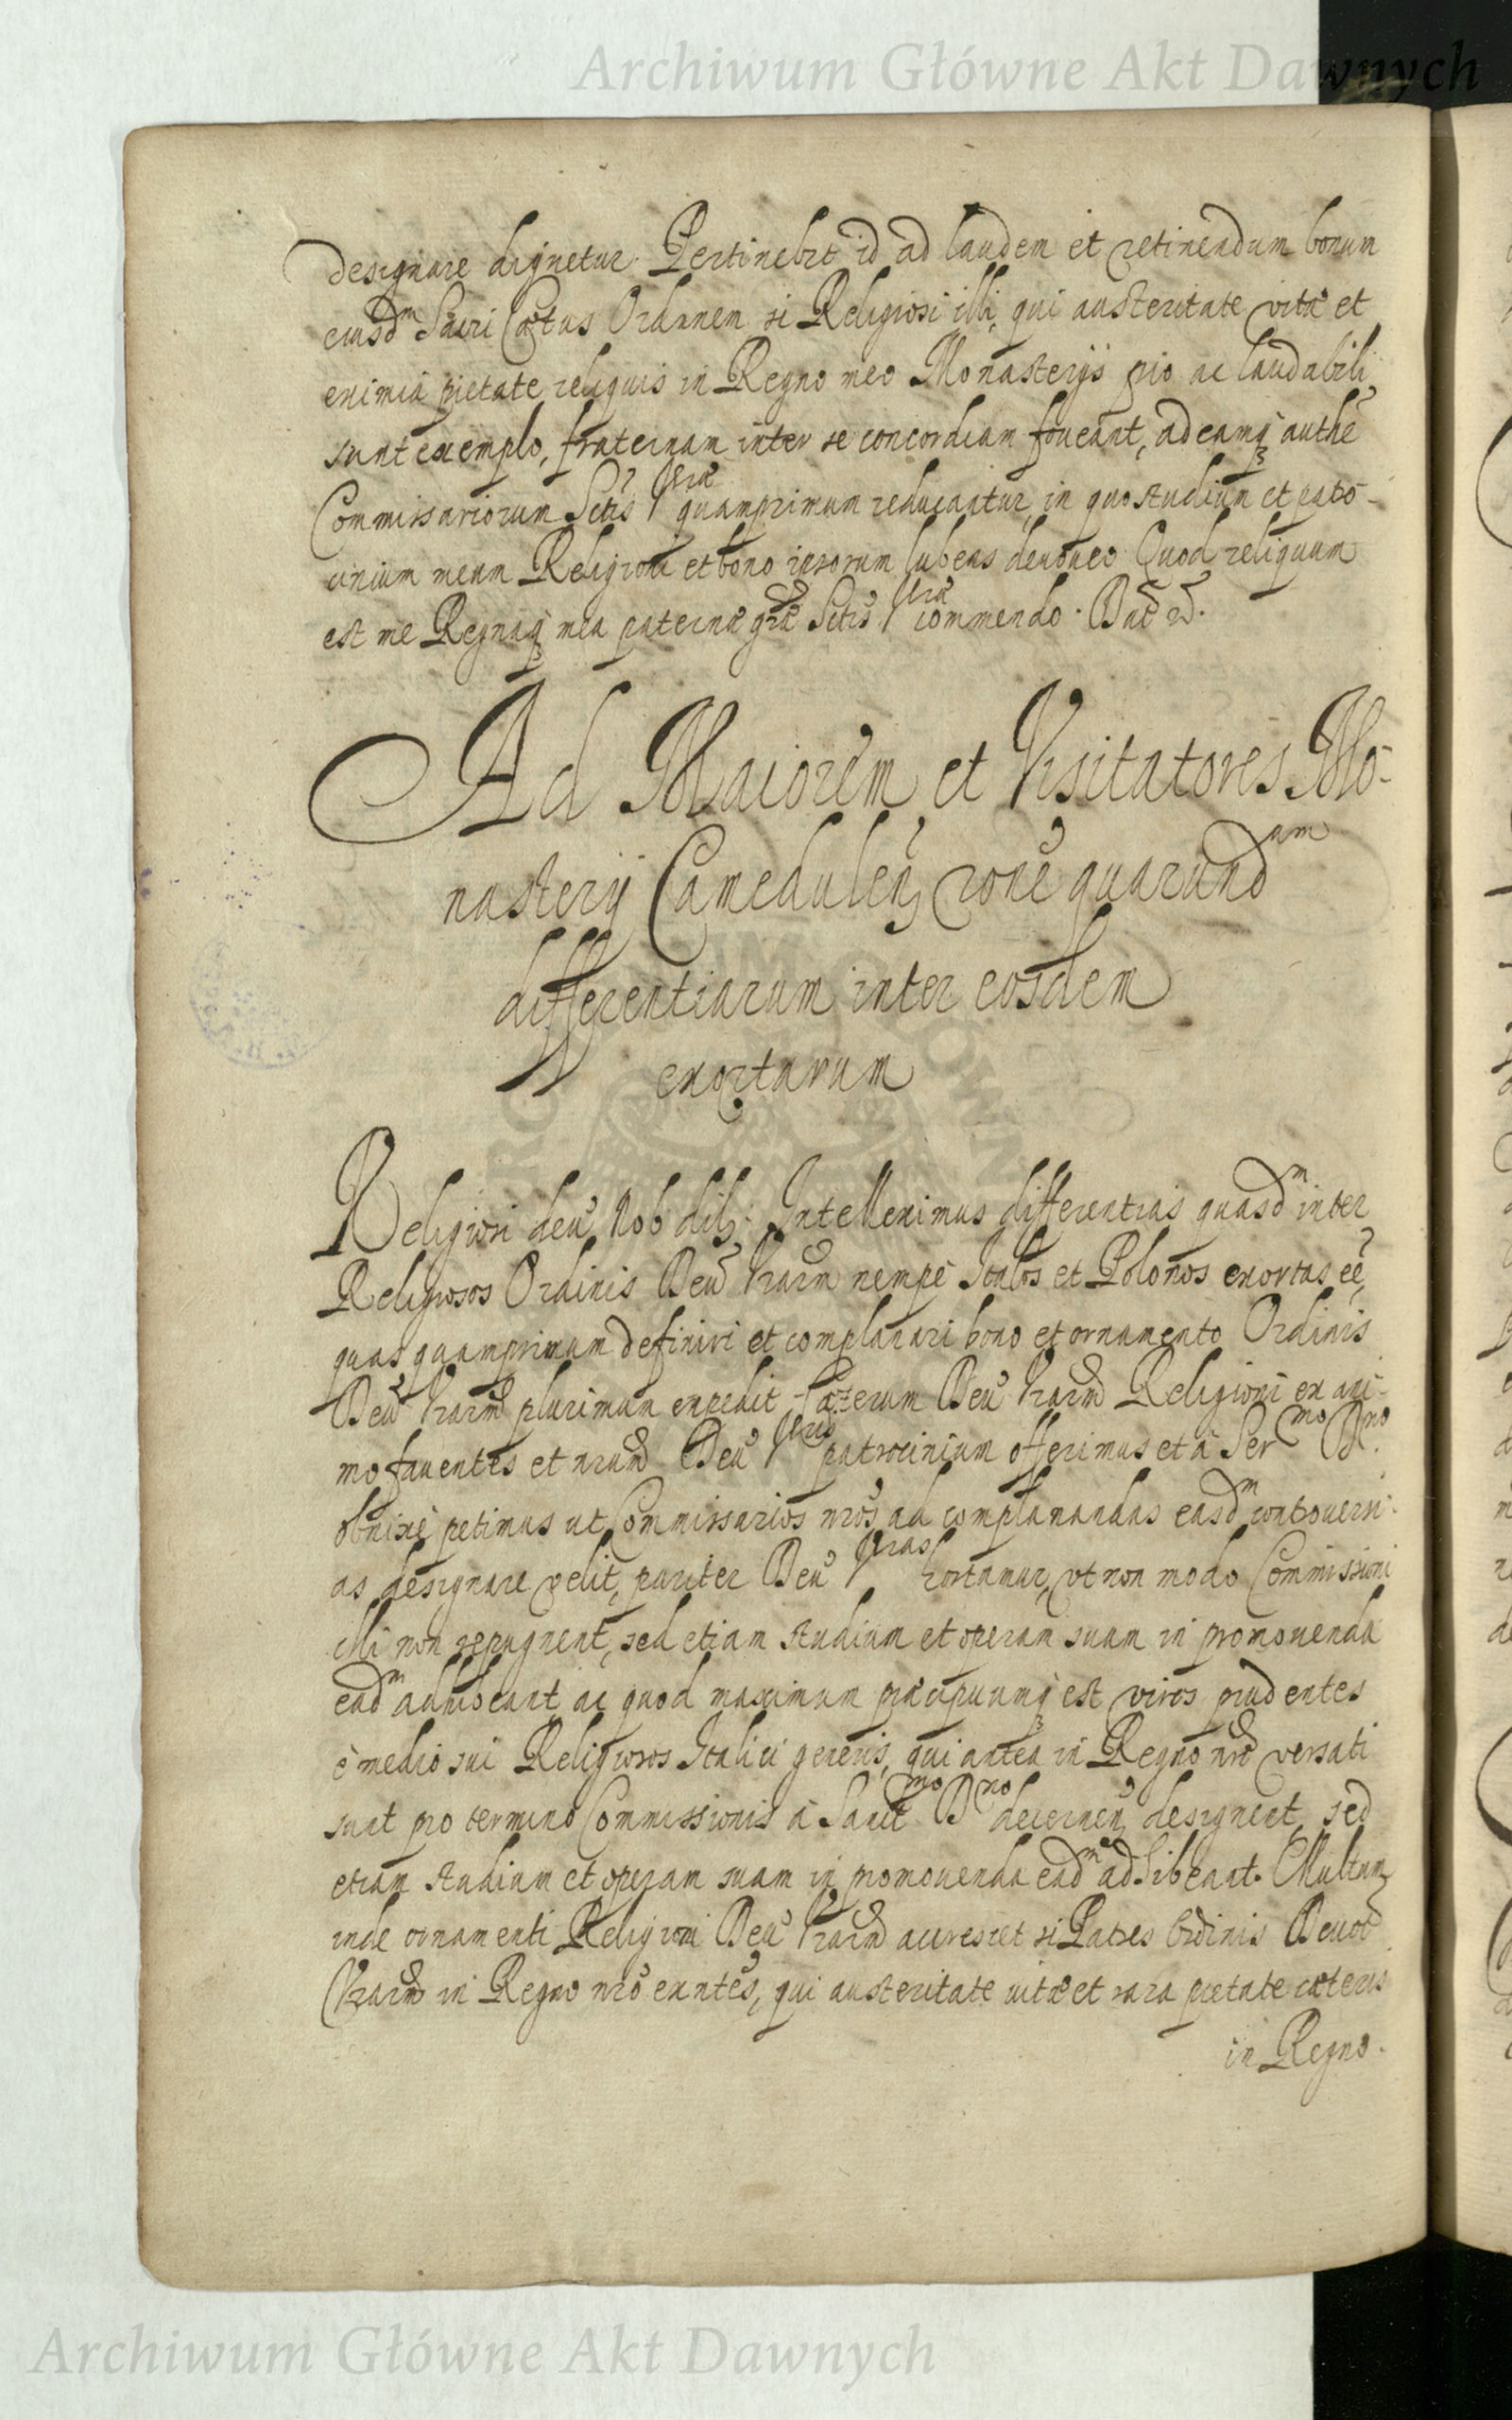 Archiwum Główne Akt Dawnych
designare dignetur. Pertinebit id ad laudem et retinendum bonum
eiusdm Sacri Cœtus Ordinem si Religiosi illi, qui austeritate vitæ et
eximiâ pietate reliquis in Regno meo Monasterijs pio ac laudabili
sunt exemplo, fraternam inter se concordiam foueant, ad eamq authe
Commissariorum Sctis Vræ quamprimum reducantur, in quo studium et patro-
cinium meum Religioni et bono ipsorum lubens deuoueo. Quod reliquum
est me Regnaq mea paternæ græ Sctis Vræ commendo. Dat
Ad Maiorem et Visitatores Mo-
nasterij Camedulen rone quarundam
differentiarum inter eosdem
exortarum
Religiosi deu Nob dil. Intelleximus differentias quasdm inter
Religiosos Ordinis Deu Vrarm nempè Italos et Polonos exortas eê,
quas quamprimum definiri et complanari bono et ornamento Ordinis
Deu Vrarm plurimum expedit. Cæterum Deu Vrarm Religioni ex ani-
mo fauentes et nrum Deu Vris patrocinium offerimus et à Sermo Dno
obnixè petimus ut Commissarios nros ad complanandas easdm controuersi-
as designare velit, pariter Deu Vras hortamur, vt non modo Commissioni
illi non repugnent, sed etiam studium et operam suam in promouenda
eadm adhibeant, ac quod maximum præcipuumq est viros prudentes
è medio sui Religiosos Italici generis, qui antea in Regno nro versati
sunt pro termino Commissionis à Sanctmo Dno decernen designent, sed
etiam studium et operam suam in promouenda eadm adhibeant. Multum
inde ornamenti Religioni Deu Vrarm accrescet si Patres Ordinis Deuot
Vrarm in Regno nro exntes, qui austeritate uitæ et rara pietate cæteris
in Regno.
Archiwum Główne Akt Dawnych